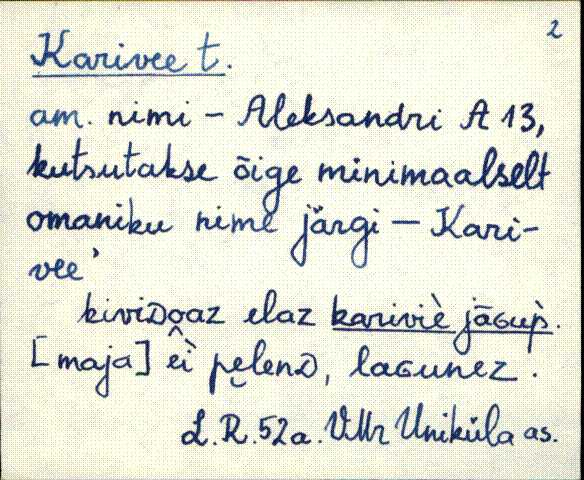 2
Karivee t.
am. nimi – Aleksandri A 13,
kutsutakse õige minimaalselt
omaniku nime järgi – Kari-
vee'
kiviDo̭az elaz kariviè jāGuƥ̀.
[maja] êì pe̮lenD, laGunez.
L.R. 52a. VMr Uniküla as.